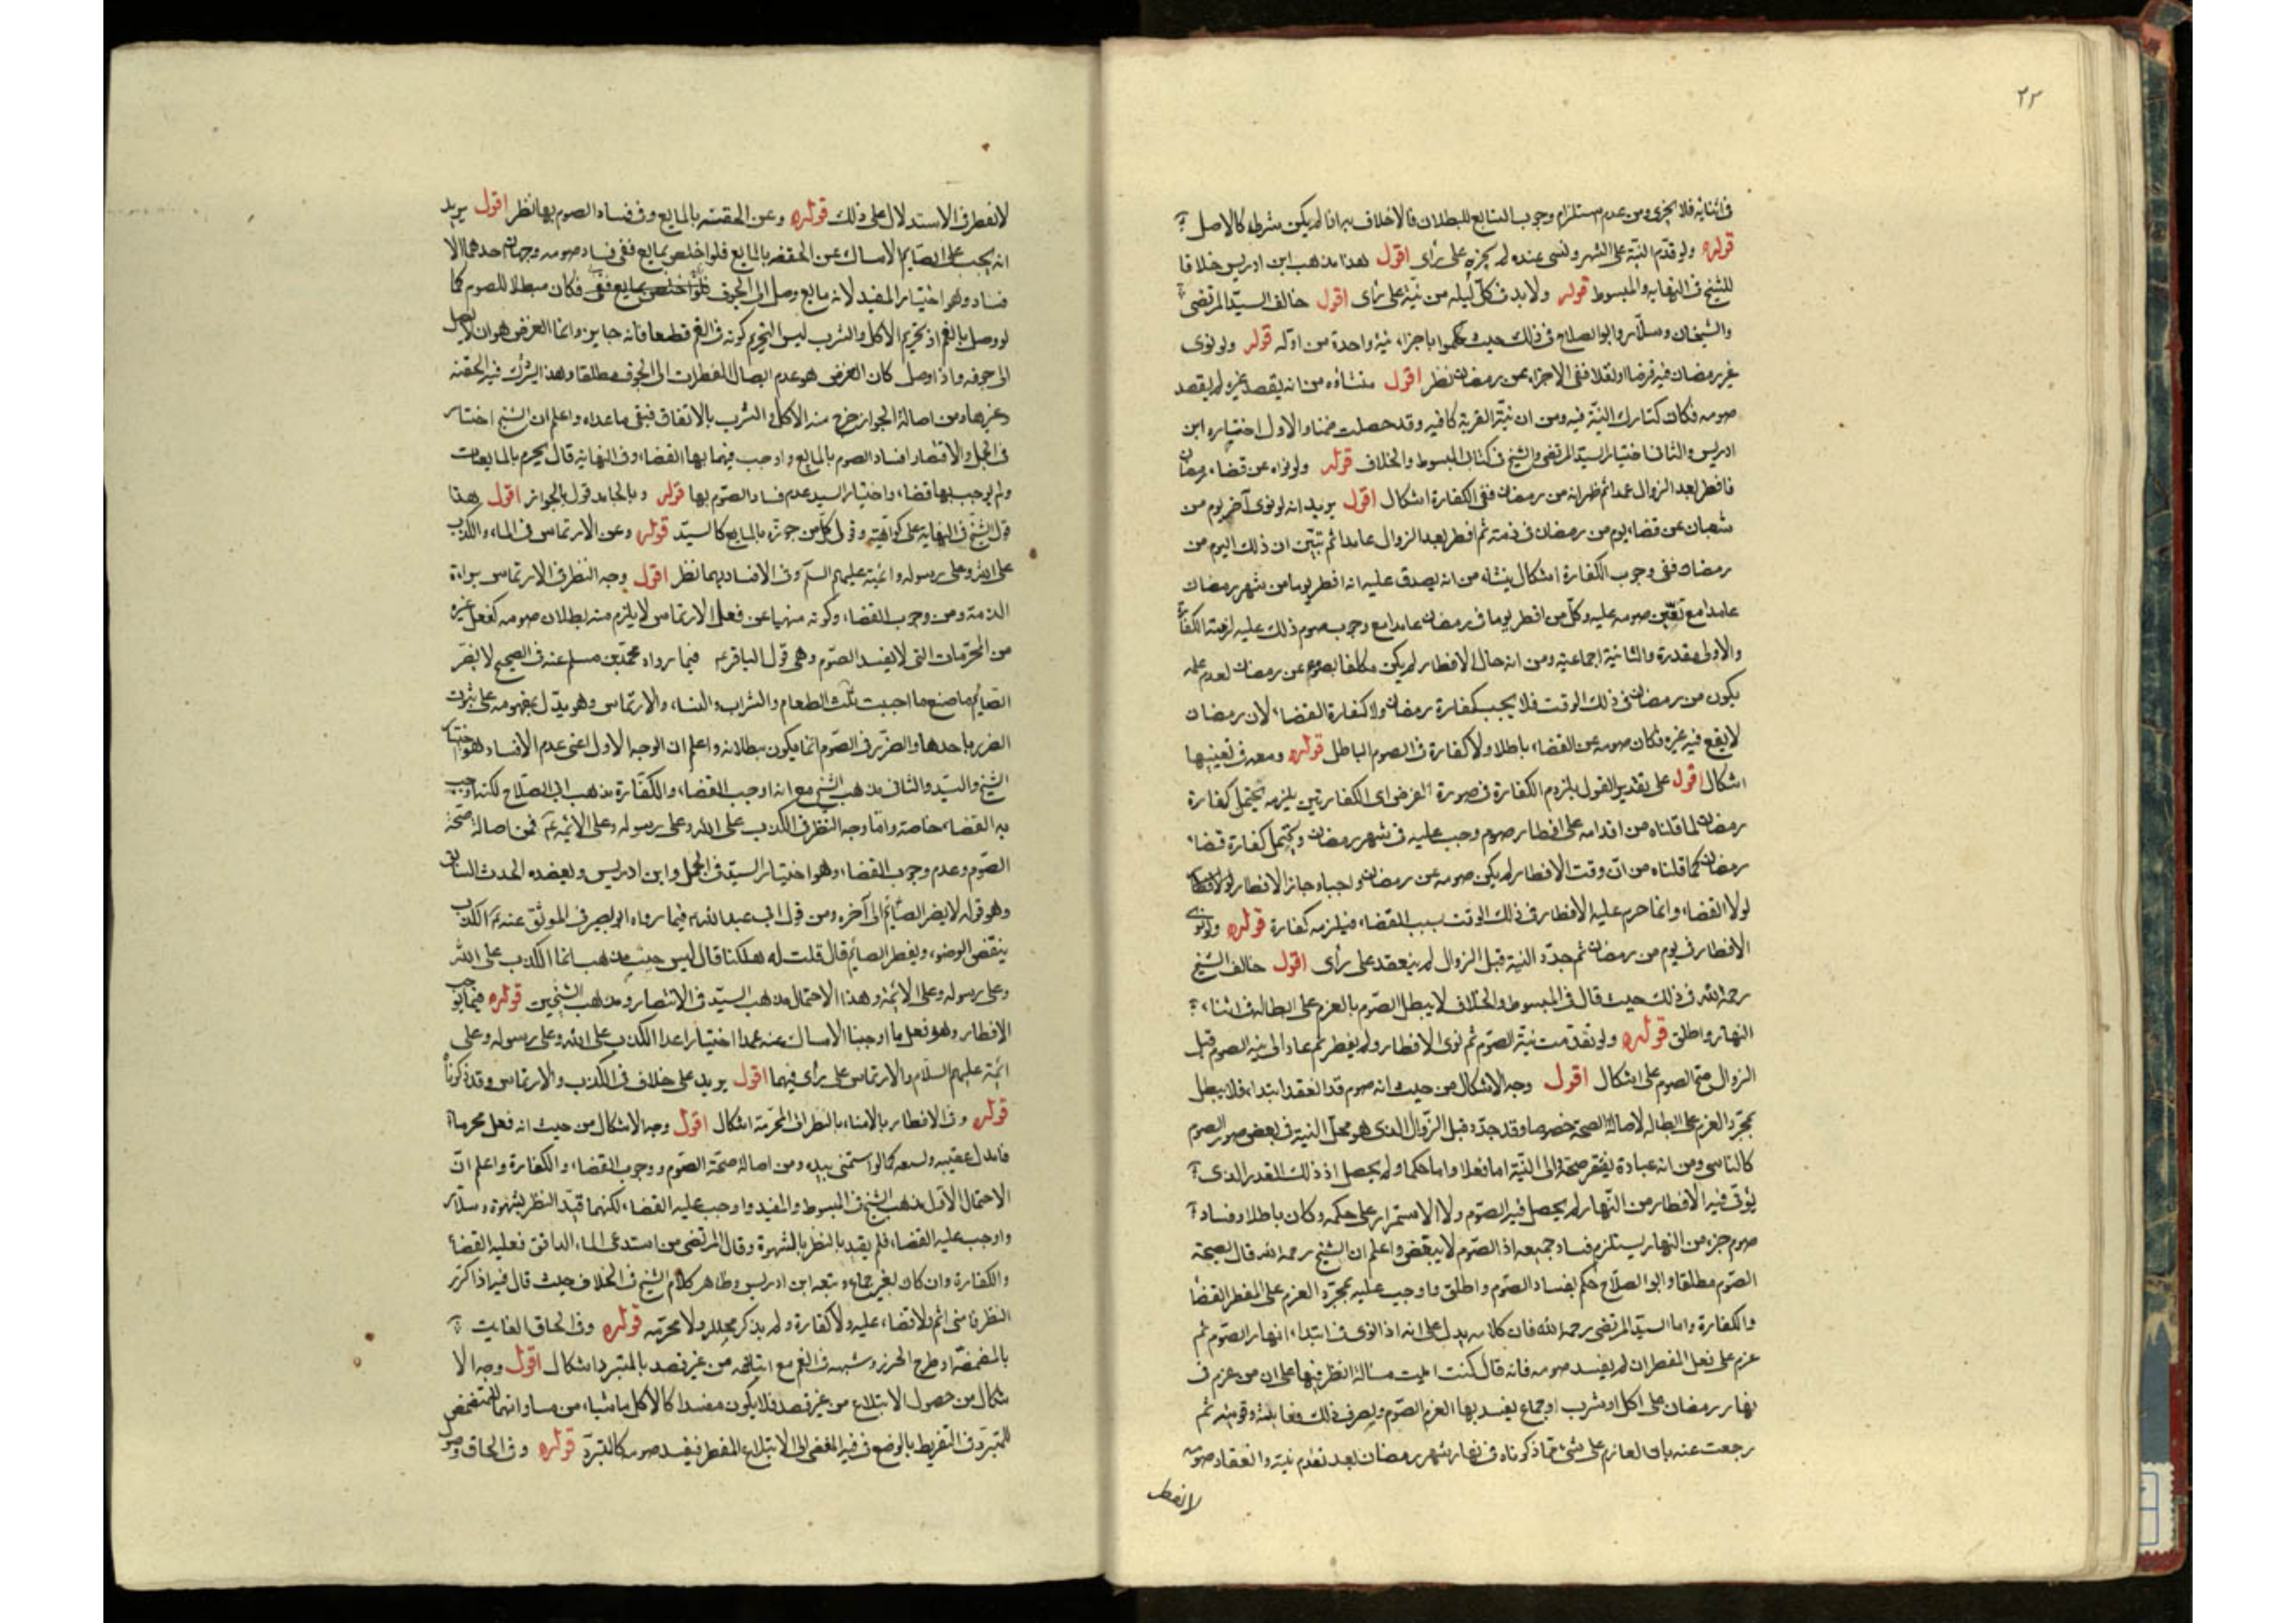 ٢٢
فى اثنائه فلا يجزى ومن عدم استلزام وجوب التتابع للبطلان فالاخلاف به اذا لم يكن شرطه كالاصل
قوله ولو قدّم النيّة على الشهر ونسى عنده لم يجزه على رأى اقول هذا مذهب ابن ادريس خلافا
للشيخ فى النهاية والمبسوط قوله ولابد فى كلّ ليله من نية على رأى اقول خالف السيّد المرتضى
والشيخان وسلّار وابو الصلاح فى ذلك حيث حكموا باجزاء نية واحدة من اوّله قوله ولو نوى
غير رمضان فيه فرضا او نفلا ففى الاجزاء عن رمضان نظر اقول منشاؤه من انه يقصد غيره لم يقصد
صومه فكان كتارك النيّة فيه ومن ان نيّة القربة كافيه وقد حصلت ضمنا والاول اختياره ابن
ادريس والثانى اختيار السيّد المرتضى والشيخ فى كتابى المبسوط والخلاف قوله ولو نواه عن قضاء رمضان
فافطر بعد الزوال عمدا ثم ظهر انه من رمضان ففى الكفارة اشكال اقول يريد انه لو نوى آخر يوم من
شعبان عن قضاء يوم من رمضان فى ذمته ثم افطر بعد الزوال عامدا ثم تبيّن ان ذلك اليوم من
رمضان ففى وجوب الكفارة اشكال ينشاء من انه يصدق عليه انه افطر يوما من شهر رمضان
عامدا مع تعيّن صومه عليه وكلّ من افطر يوما فى رمضان عامدا مع وجوب صوم ذلك عليه لزمته الكفارة
والاولى مقدرة والثانية اجماعية ومن انه حال الافطار لم يكن مكلفا بصوم عن رمضان لعدم علمه
بكون من رمضان فى ذلك الوقت فلا يجب كفارة رمضان ولا كفارة القضاء لان رمضان
لا يقع فيه غيره فكان صومه عن القضاء باطلا ولا كفارة فى الصوم الباطل قوله ومعه فى تعيينها
اشكال اقول على تقدير القول بلزوم الكفارة فى صورة الفرض اى الكفارتين يلزمه يحتمل كفارة
رمضان لما قلناه من اقدامه على افطار صوم وجب عليه فى شهر رمضان ويحتمل كفارة قضاء
رمضان كما قلناه من انّ وقت الافطار لم يكن صومه عن رمضان واجبا وجائز الافطار
لولا القضاء وانما حرم عليه الافطار فى ذلك الوقت بسبب القضاء فيلزمه كفارة قوله ولو نوى
الافطار فى يوم من رمضان ثم جدّد النية قبل الزوال لم ينعقد على رأى اقول خالف الشيخ
رحمه الله فى ذلك حيث قال فى المبسوط والخلاف لا يبطل الصّوم بالعزم على ابطاله فى اثناء
النهار واطلق قوله ولو تقدمت نيّة الصّوم ثم نوى الافطار ولم يفطر ثم عاد الى نية الصوم قبل
الزوال صح الصوم على اشكال اقول وجه الاشكال من حيث انه صوم قد انعقد ابتداء فلا يبطل
بمجرّد العزم على ابطاله لاصالة الصحّة خصوصا وقد جدّده قبل الزّوال الذى هو محلّ النية فى بعض صور الصوم
كالناسى ومن انه عبادة يفتقر صحته الى النّية اما فعلا واما حكما ولم يحصل اذ ذلك القدر الذى
نوى فيه الافطار من النّهار لم يحصل فيه الصّوم ولا الاستمرار على حكمه وكان باطلا وفساد
صوم جزء من النهار يستلزم فساد جميعه اذ الصّوم لا يتبعّض واعلم ان الشيخ رحمه الله قال بصحة
الصّوم مطلقا وابو الصلاح حكم بفساد الصّوم واطلق واوجب عليه بمجرّد العزم على المفطر القضاء
والكفارة واما السيّد المرتضى رحمه الله فان كلامه يدل على انه اذا نوى فى ابتداء النهار الصّوم ثم
عزم على فعل المفطر ان لم يفسد صومه فانه قال كنت امليت مسالة انظر فيها على ان من عزم فى
نهار رمضان على اكل او شرب او جماع يفسد بهذا العزم الصّوم ونصرت ذلك وقويته ثم
رجعت عنه بان العازم على شىء مما ذكرناه فى نهار شهر رمضان بعد تقدم نيته وانعقاد صومه
لا يفطر
لا يفطر فى الاستدلال على ذلك قوله وعن الحقنة بالمايع وفى فساد الصوم بها نظر اقول يريد
انه يجب على الصّايم الامساك عن الحقنة بالمايع فلو احتقن بمايع ففى فساد صومه وجهان احدهما الا
فساد وهو اختيار المفيد لانه مايع وصل الى الجوف فكان مبطلا للصوم كما
لو وصل بالفم اذ تحريم الاكل والشرب ليس التحريم كونه فى الفم قطعا فانه جايز وانما الغرض هو ان لا يصل
الى جوفه واذا وصل كان الغرض هو عدم ايصال المفطرات الى الجوف مطلقا وهذا يشترك فيه الحقنة
وغيرها ومن اصالة الجواز خرج منه الاكل والشرب بالاتفاق فبقى ما عداه واعلم ان الشيخ اختار
فى الجمل والاقتصاد افساد الصوم بالمايع واوجب فيهما بها القضاء وفى النهاية قال يحرم بالمايعات
ولم يوجب بها قضاء واختيار السيد عدم فساد الصّوم بها قوله وبالجامد قول بالجواز اقول هذا
قول الشيخ فى النهاية على كراهية وقول كلّ من جوزه بالمايع كالسيّد قوله وعن الارتماس فى الماء والكذب
على الله وعلى رسوله وائمته عليهم السلم وفى الافساد بهما نظر اقول وجه النظر فى الارتماس براءة
الذمة ومن وجوب القضاء وكونه منهيا عن فعل الارتماس لا يلزم منه بطلان صومه كفعل غيره
من المحرّمات التى لا يفسد الصّوم وهى قول الباقر ع فيما رواه محمّد بن مسلم عنه فى الصحيح لا يضر
الصّايم ما صنع ما اجتنب ثلث الطعام والشراب والنساء والارتماس وهو يدّل بمفهومه على ثبوت
الضرر باحدها والضرّر فى الصّوم انما يكون ببطلانه واعلم ان الوجه الاول اعنى عدم الافساد هو اختيار
الشيخ والسيّد والثانى مذهب الشيخ مع انه اوجب القضاء والكفّارة مذهب ابى الصّلاح لكنه اوجب
به القضاء خاصة وامّا وجه النظر فى الكذب على الله وعلى رسوله وعلى الائمة ع فمن اصالة صحّة
الصّوم وعدم وجوب القضاء وهو اختيار السيّد فى الجمل وابن ادريس ويعضده الحدث السابق
وهو قوله لا يضر الصّايم الى آخره ومن قول ابى عبد الله ع فيما رواه ابو بصير فى الموثّق عنه ع الكذب
ينقض الوضوء ويفطر الصايم قال قلت له هلكنا قال ليس حيث تذهب انما الكذب على الله
وعلى رسوله وعلى الائمة وهذا الاحتمال مذهب السيّد فى الانتصار ومذهب الشيخين قوله فيما يوجب
الافطار وهو فعل ما اوجبنا الامساك عنه عمدا اختيارا عدا الكذب على الله وعلى رسوله وعلى
ائمّة عليهم السلام والارتماس على رأى فيهما اقول يريد على خلاف فى الكذب والارتماس وقد ذكرناه
قوله وفى الافطار بالامناء بالنظر الى المحرّمة اشكال اقول وجه الاشكال من حيث انه فعل محرما
فانزل عقيبه كما لو استمنى بيده ومن اصالة صحّة الصّوم ووجوب القضاء والكفارة واعلم انّ
الاحتمال الاوّل مذهب الشيخ فى المبسوط والمفيد واوجب عليه القضاء لكنهما قيّدا النظر بشهوة وسلّار
واوجب عليه القضاء فلم يقيد بالنظر بالشهوة وقال المرتضى من استدعى الماء الدافق فعليه القضاء
والكفارة وان كان لغير جماع وتبعه ابن ادريس وظاهر كلام الشيخ فى الخلاف حيث قال فيه اذا كرّر
النظر فامنى اثم ولا قضاء عليه ولا كفارة ولم يذكر محلله ولا محرّمه قوله وفى الحاق العابث
بالمضمضة او طرح الخرز وشبهه فى الفم مع ابتلاعه من غير قصد بالمتبرد اشكال اقول وجه الا
شكال من حصول الابتلاع من غير قصد فلا يكون مفسدا كالاكل ناسيا من مساواتهما للمتمضمض
للتبرّد فى التفريط بالوضع فى فيه المفضى الى الابتلاع المفطر فيفسد صومه كالتبرّد قوله وفى الحاق وصول